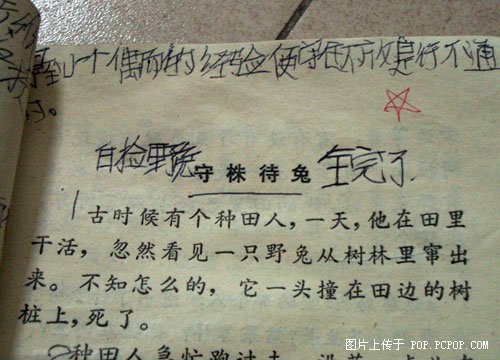 得到一个偶而的经验便守住不放是行不通
的。
自捡野兔 守株待兔 全完了
1古时候有个种田人，一天，他在田里
干活，忽然看见一只野兔从树林里窜出
来。不知怎么的，它一头撞在田边的树
桩上，死了。
2种田人急忙跑过去
图片上传于 POP.PCPOP.COM